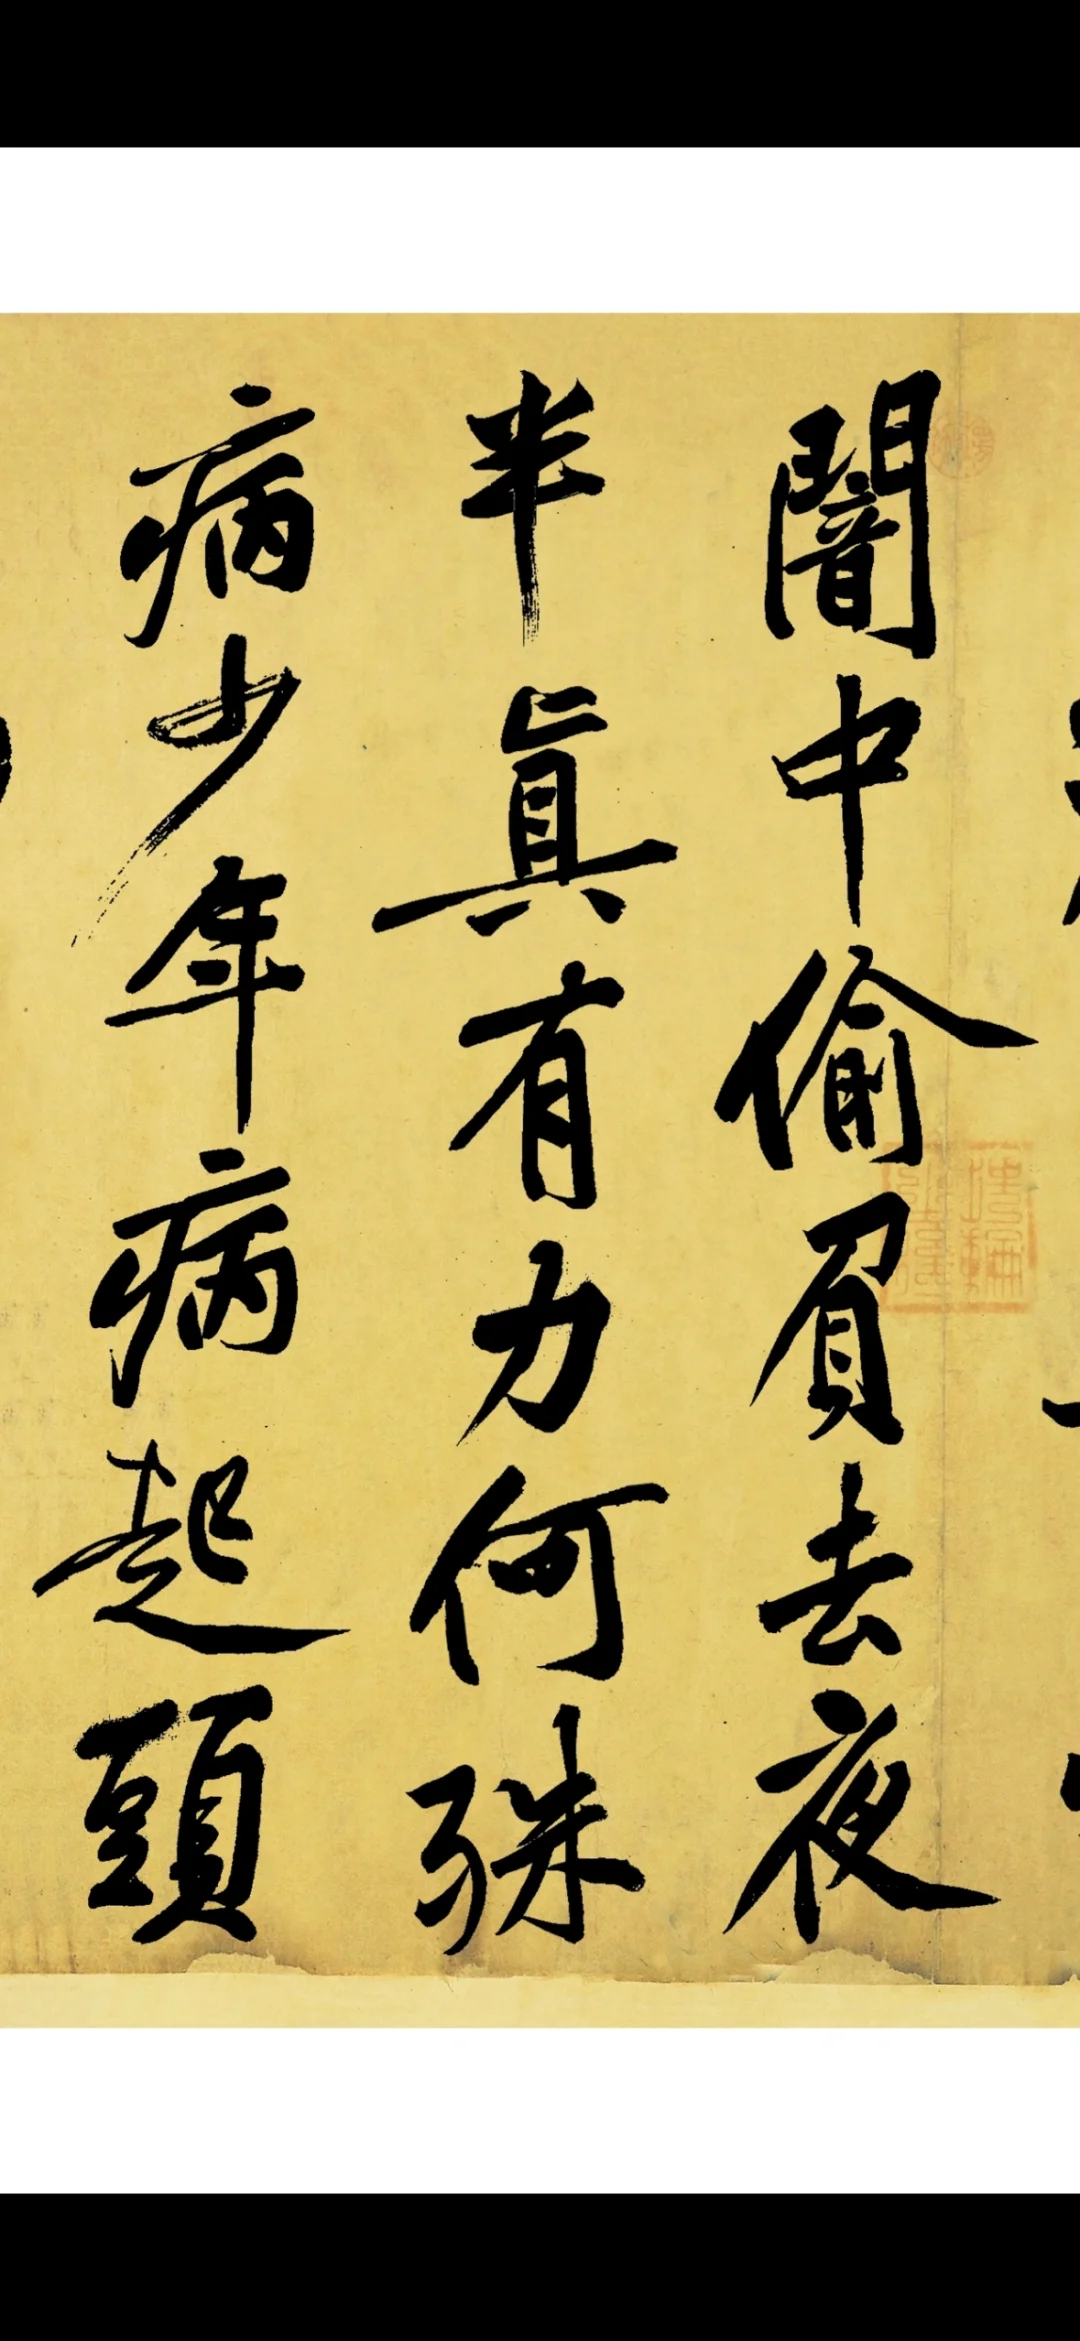 闇中偷負去夜
半真有力何殊
病少年病起頭